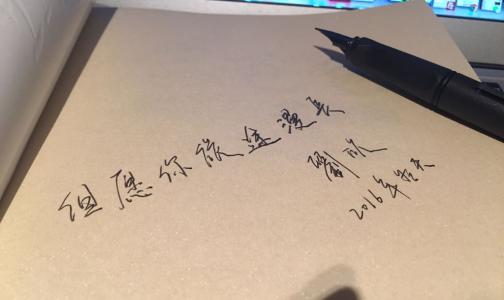 但愿你旅途漫长
刘欣
2016年春天